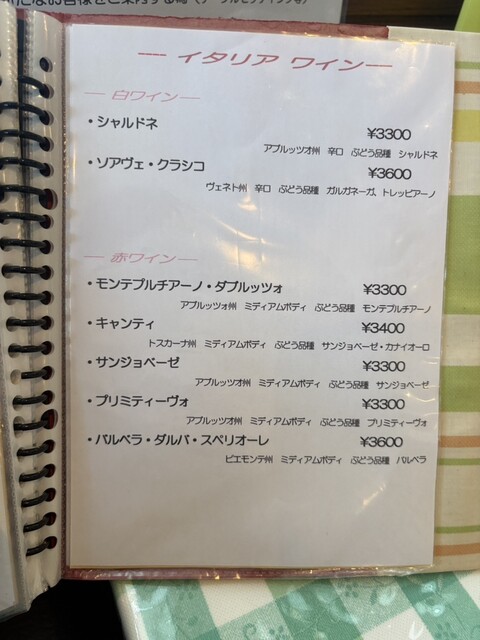 — イタリア ワイン—
— 白ワイン—
・シャルドネ
¥3300
アブルッツオ州 辛口 ぶどう品種 シャルドネ
・ソアヴェ・クラシコ
¥3600
ヴェネト州 辛口 ぶどう品種 ガルガネーガ、トレッビアーノ
— 赤ワイン—
・モンテプルチアーノ・ダブルッツォ
¥3300
アブルッツォ州 ミディアムボディ ぶどう品種 モンテプルチアーノ
・キャンティ
¥3400
トスカーナ州 ミディアムボディ ぶどう品種 サンジョベーゼ・カナイオーロ
・サンジョベーゼ
¥3300
アブルッツオ州 ミディアムボディ ぶどう品種 サンジョベーゼ
・プリミティーヴォ
¥3300
アブルッツオ州 ミディアムボディ ぶどう品種 プリミティーヴォ
・バルベラ・ダルバ・スペリオーレ
¥3600
ピエモンテ州 ミディアムボディ ぶどう品種 バルベラ